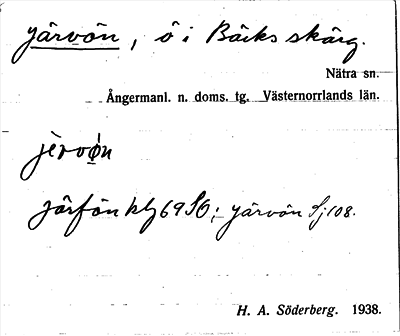 Järvön, ö i Bäcks skärg.
Nätra sn.
Ångermanl. n. doms. tg. Västernorrlands län.
jèrvǿn
Järfön klg 69 SO; Järvön Sj 108.
H. A. Söderberg. 1938.